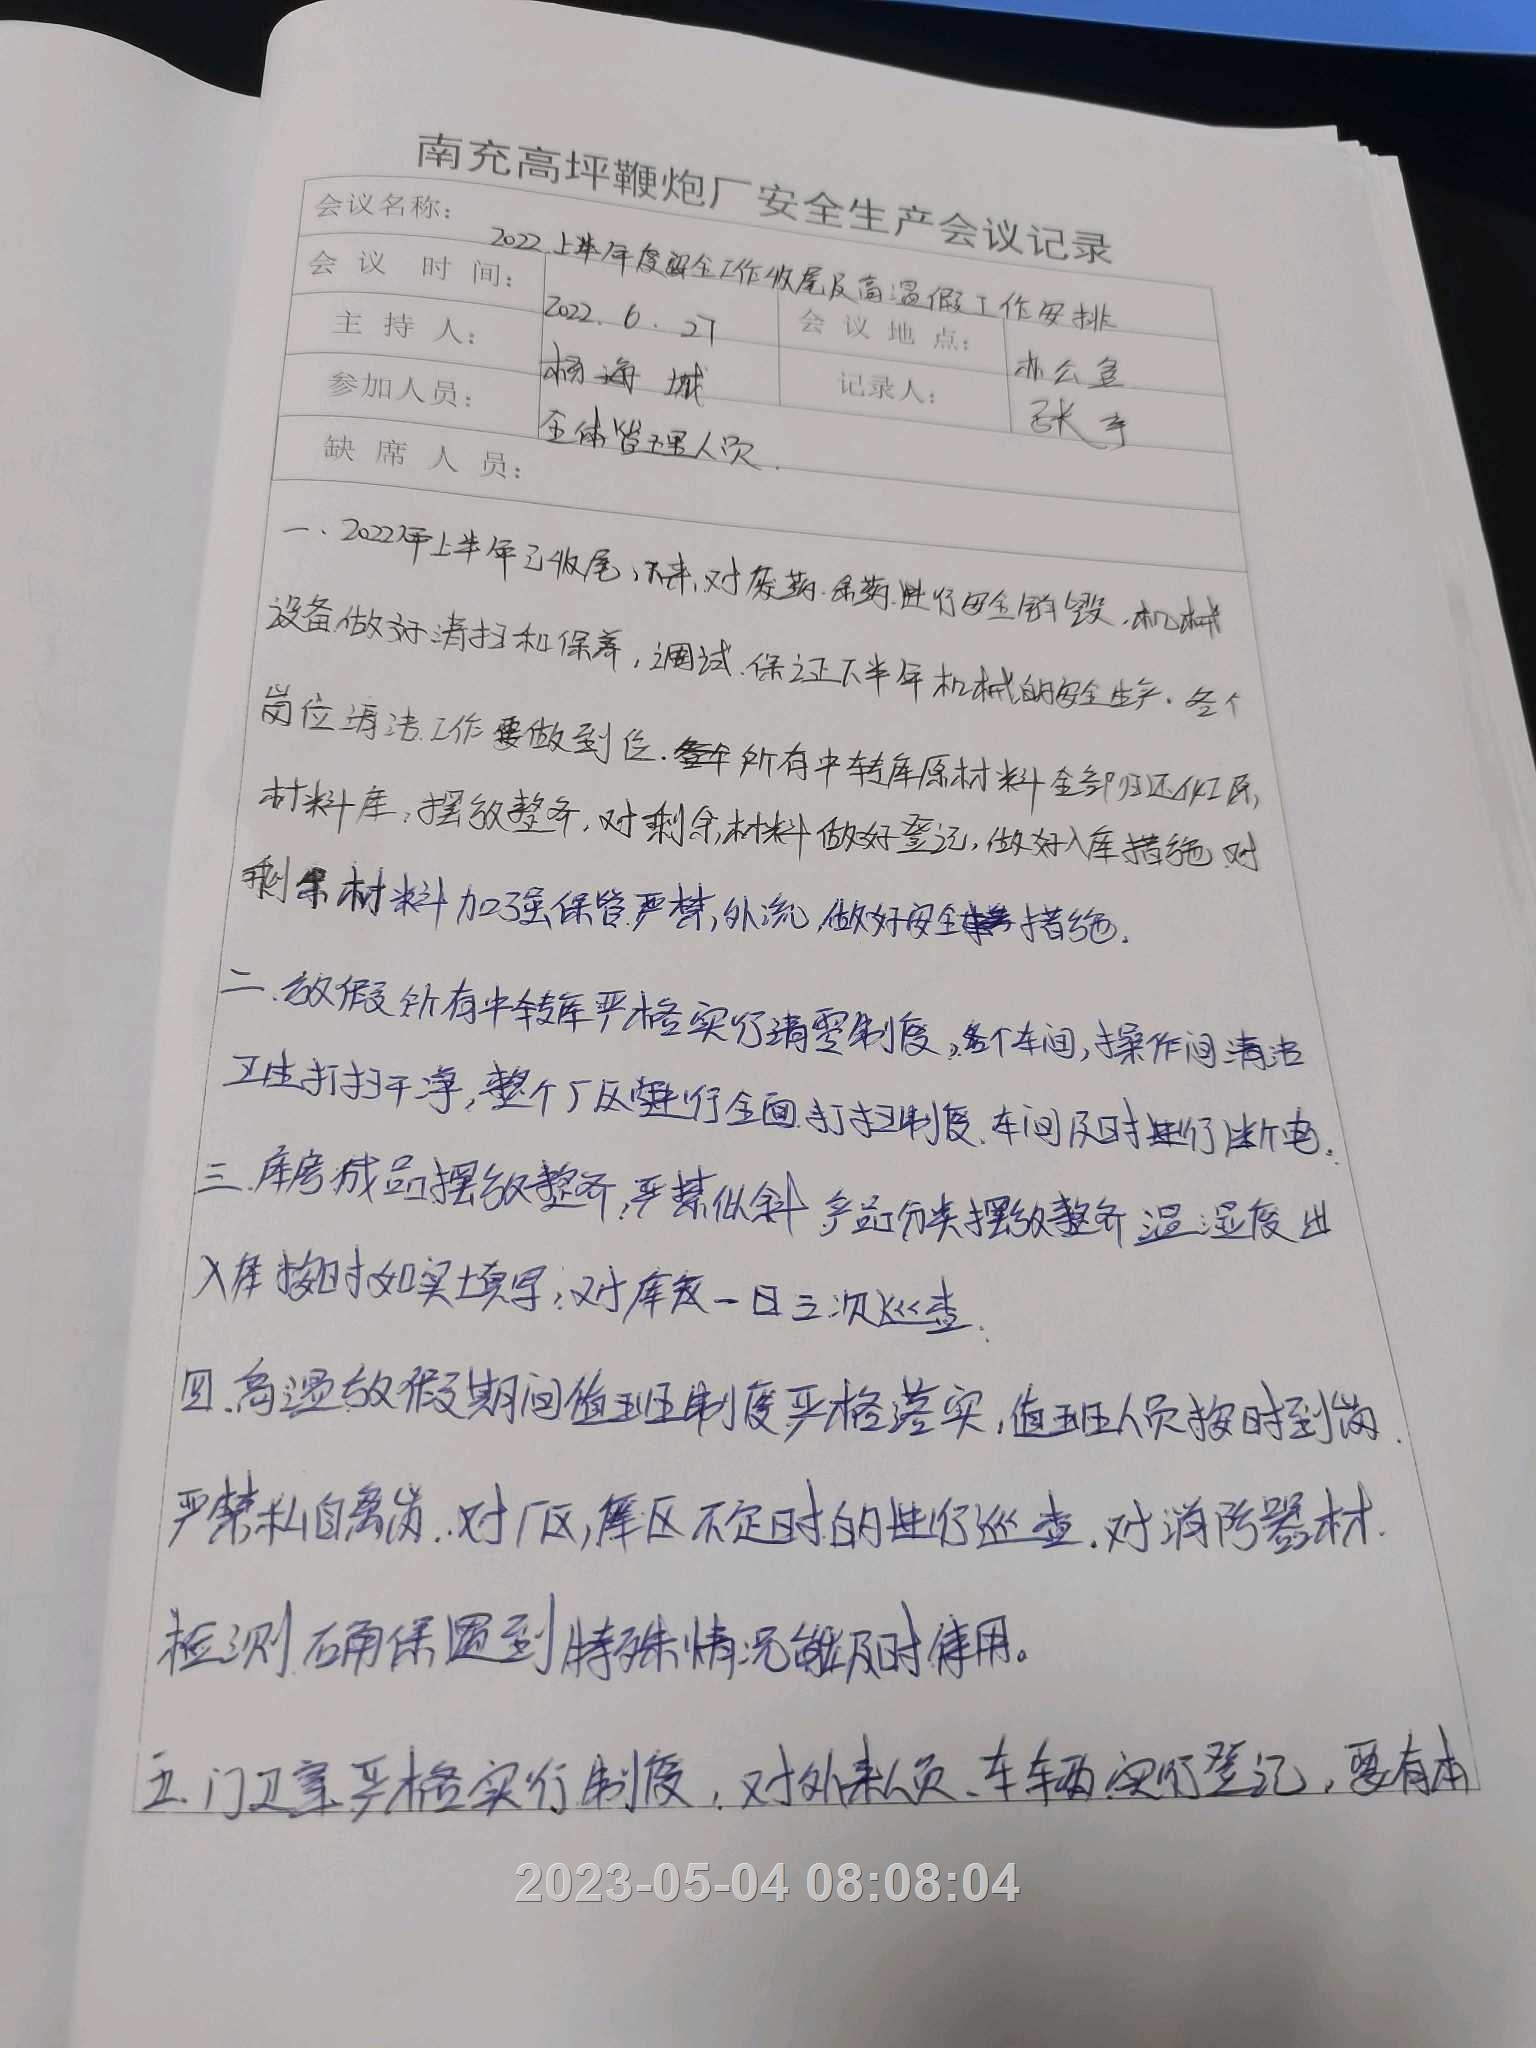 南充高坪鞭炮厂安全生产会议记录
会议名称： 2022上半年度安全工作收尾及高温假工作安排
会议时间： 2022.6.27 会议地点： 办公室
主持人： 杨海城 记录人： 张
参加人员： 全体管理人员.
缺席人员：
一、2022年上半年已收尾,下来,对废药.余药.进行安全销毁,机械
设备做好清扫和保养,调试.保证下半年机械的安全生产.各个
岗位清洁工作要做到位.所有中转库原材料全部归还化工原,
材料库,摆放整齐,对剩余材料做好登记,做好入库措施.对
剩余材料加强保管严禁,外流,做好安全措施.
二.放假所有中转库严格实行清零制度,各个车间,操作间清洁
卫生打扫干净,整个厂区进行全面打扫制度.车间及时进行断电.
三.库房成品摆放整齐,严禁倾斜产品分类摆放整齐温湿度出
入库按时如实填写,对库区一日三次巡查.
四.高温放假期间值班制度严格落实,值班人员按时到岗.
严禁私自离岗.对厂区,库区不定时的进行巡查.对消防器材.
检测确保遇到特殊情况能及时使用。
五.门卫室严格实行制度,对外来人员、车辆实行登记,要有本
2023-05-04 08:08:04